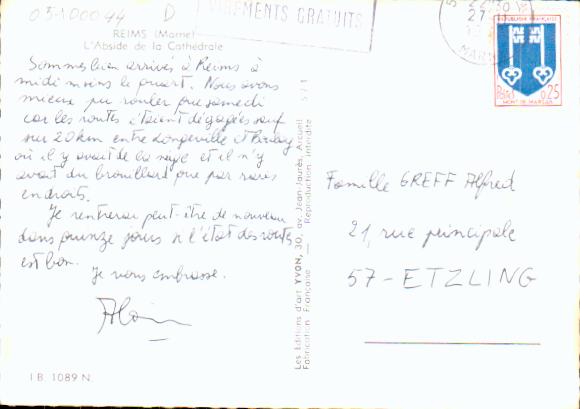 05100044 D
VIREMENTS GRATUITS
REIMS (Marne)
L'Abside de la Cathédrale
22 30
27
MARNE
REPUBLIQUE FRANÇAISE
Postes 0,25
MONT-DE-MARSAN
Sommes bien arrivés à Reims à
midi moins le quart. Nous avons
mieux pu rouler que samedi
car les routes étaient dégagées sauf
sur 20 km entre Longeville et
où il y avait de la neige et il n'y
avait du brouillard que par rares
endroits.
Je rentrerai peut-être de nouveau
dans quinze jours si l'état des routes
est bon.
Je vous embrasse.
Alain
Famille GREFF Alfred
21, rue principale
57 - ETZLING
Les Editions d'art YVON, 30, av. Jean-Jaurès, Arcueil
Fabrication Française — Reproduction interdite
I B. 1089 N.